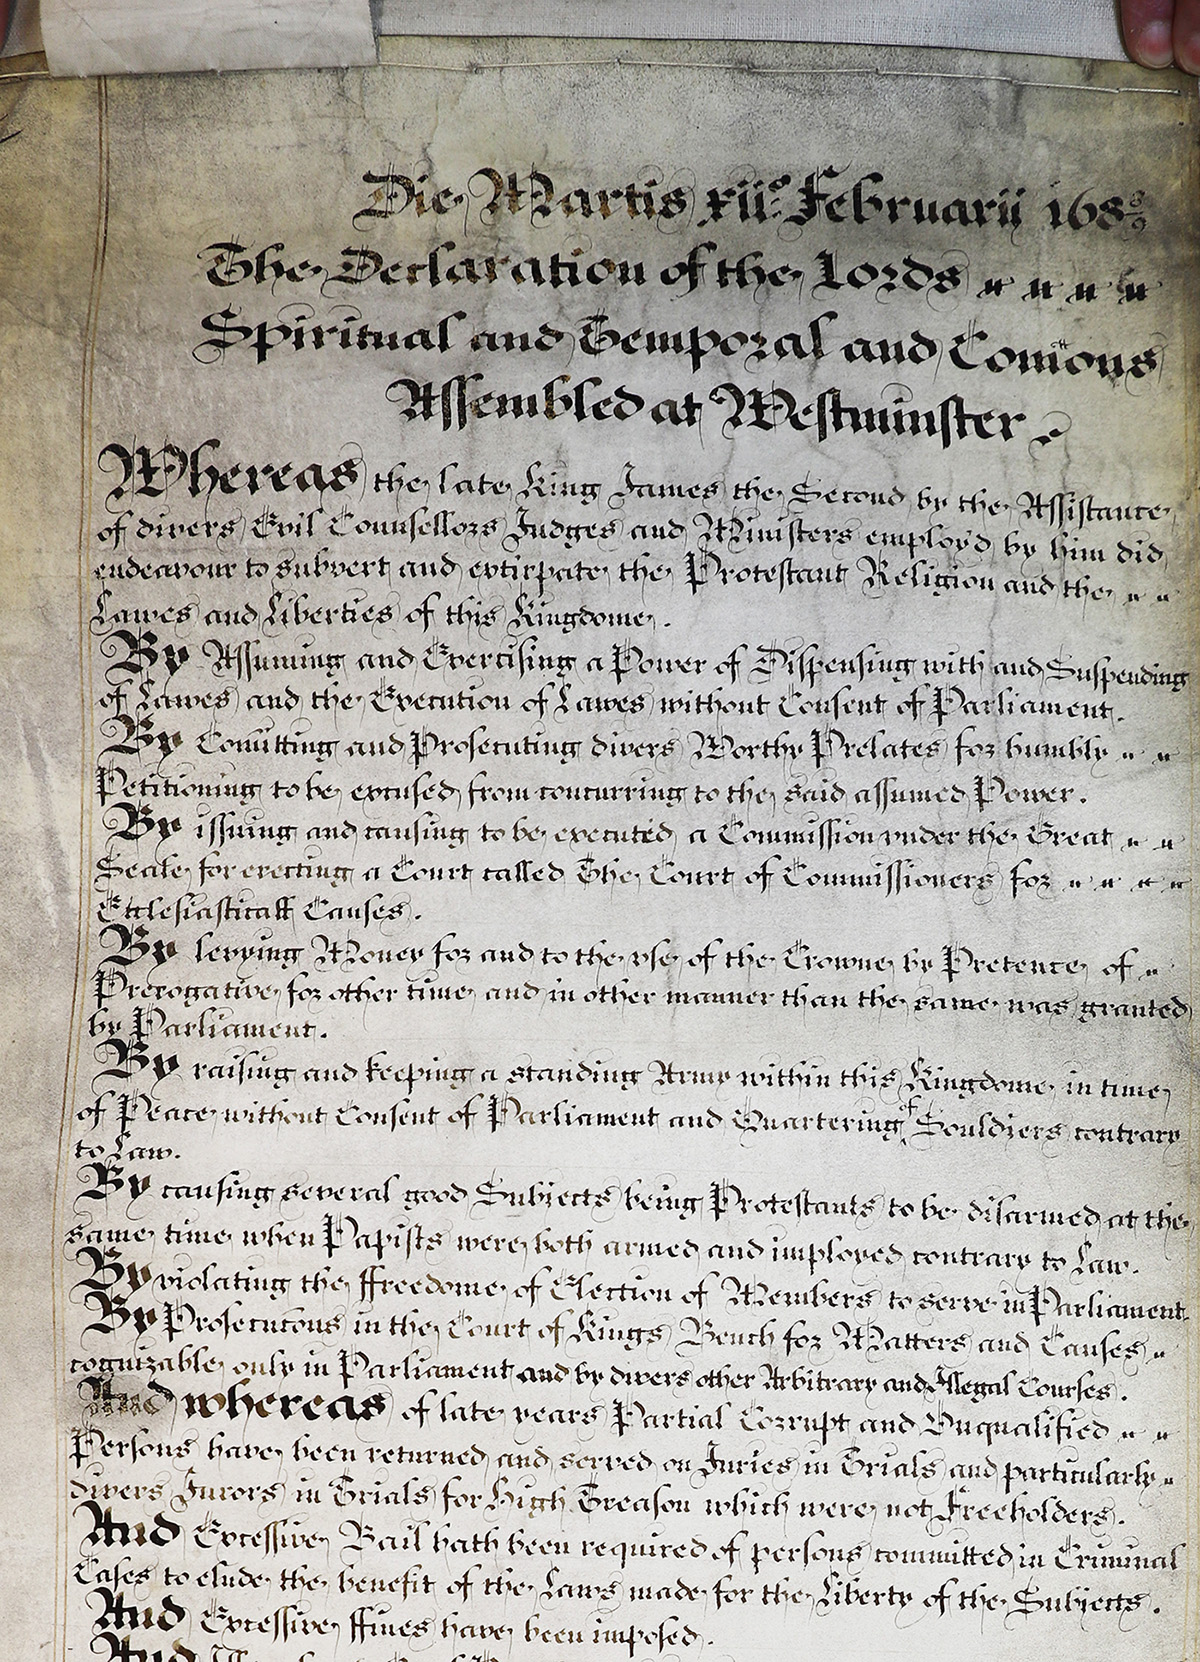 Die Martis xiio: Februarii 168 8/9
The Declaration of the Lords
Spiritual and Temporal and Com̃ons
Assembled at Westminster
Whereas the late King James the Second by the Assistance
of divers Evil Counsellors Judges and Ministers employd by him did
endeavour to subvert and extirpate the Protestant Religion and the
Lawes and Liberties of this Kingdome.
By Assuming and Exercising a Power of Dispensing with and Suspending
of Lawes and the Execution of Lawes without Consent of Parliament.
By Com̃itting and Prosecuting divers Worthy Prelates for humbly
Petitioning to be excused from concurring to the said assumed Power.
By issuing and causing to be executed a Commission vnder the Great
Seale for erecting a Court called The Court of Commissioners for
Ecclesiasticall Causes.
By levying Money for and to the vse of the Crowne by Pretence of
Prerogative for other time and in other manner than the same was granted
by Parliament.
By raising and keeping a standing Army within this Kingdome in time
of Peace without Consent of Parliament and Quartering of Souldiers contrary
to Law.
By causing several good Subjects being Protestants to be disarmed at the
same time when Papists were both armed and imployed contrary to Law.
By violating the ffreedome of Election of Members to serve in Parliament.
By Prosecutons in the Court of Kings Bench for Matters and Causes
cognizable only in Parliament and by divers other Arbitrary and Illegal Courses.
And whereas of late years Partial Corrupt and Vnqualified
Persons have been returned and served on Juries in Trials and particularly
divers Jurors in Trials for High Treason which were not Freeholders.
And Excessive Bail hath been required of persons committed in Criminal
Cases to elude the benefit of the Laws made for the Liberty of the Subjects.
And Excessive ffines have been imposed.
And